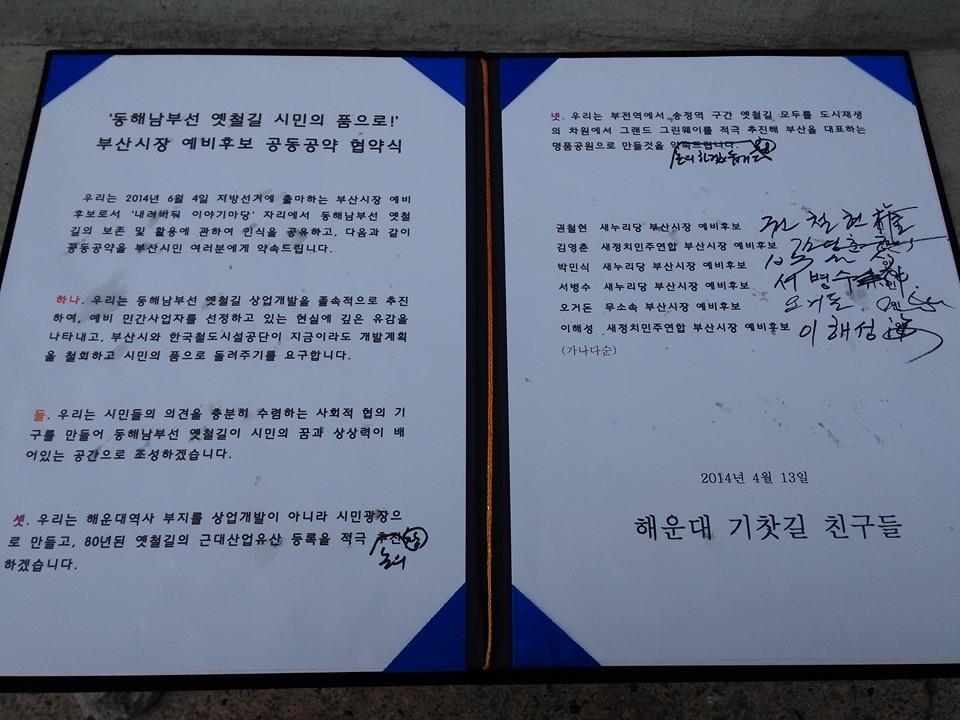 '동해남부선 옛철길 시민의 품으로!'
부산시장 예비후보 공동공약 협약식
우리는 2014년 6월 4일 지방선거에 출마하는 부산시장 예비
후보로서 '내려버둬 이야기마당' 자리에서 동해남부선 옛철
길의 보존 및 활용에 관하여 인식을 공유하고, 다음과 같이
공동공약을 부산시민 여러분에게 약속드립니다.
하나. 우리는 동해남부선 옛철길 상업개발을 졸속적으로 추진
하여, 예비 민간사업자를 선정하고 있는 현실에 깊은 유감을
나타내고, 부산시와 한국철도시설공단이 지금이라도 개발계획
을 철회하고 시민의 품으로 돌려주기를 요구합니다.
둘. 우리는 시민들의 의견을 충분히 수렴하는 사회적 협의 기
구를 만들어 동해남부선 옛철길이 시민의 꿈과 상상력이 배
어있는 공간으로 조성하겠습니다.
셋. 우리는 해운대역사 부지를 상업개발이 아니라 시민광장으
로 만들고, 80년된 옛철길의 근대산업유산 등록을 적극 추진
논의
하겠습니다.
넷. 우리는 부전역에서 송정역 구간 옛철길 모두를 도시재생
의 차원에서 그랜드 그린웨이를 적극 추진해 부산을 대표하는
명품공원으로 만들것을 약속드립니다.
권철현 새누리당 부산시장 예비후보 권철현
김영춘 새정치민주연합 부산시장 예비후보 김영춘
박민식 새누리당 부산시장 예비후보
서병수 새누리당 부산시장 예비후보 서병수
오거돈 무소속 부산시장 예비후보 오거돈
이해성 새정치민주연합 부산시장 예비후보 이해성
(가나다순)
2014년 4월 13일
해운대 기찻길 친구들